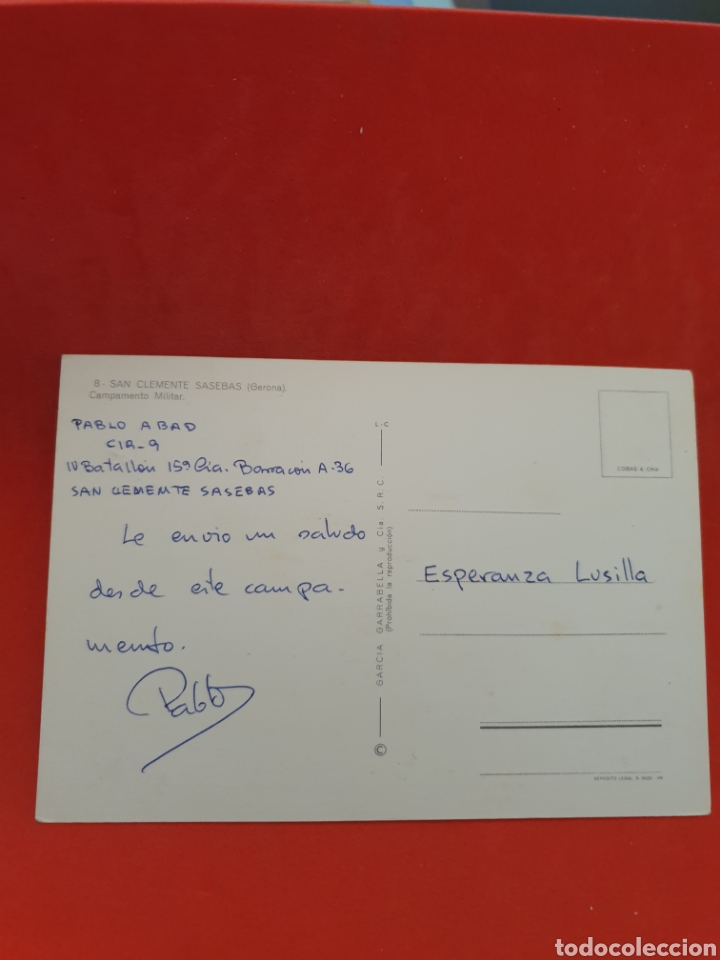 8 - SAN CLEMENTE SASEBAS (Gerona).
Campamento Militar.
PABLO ABAD
CIR-9
IV Batallón 15ª Cia. Barracón A-36
SAN CLEMEMTE SASEBAS
Le envio un saludo
desde este campa-
mento.
Pablo
L-C
GARCIA GARRABELLA y Cía. S.R.C.
(Prohibida la reproducción)
©
Esperanza Lusilla
DEPOSITO LEGAL B.
todocoleccion